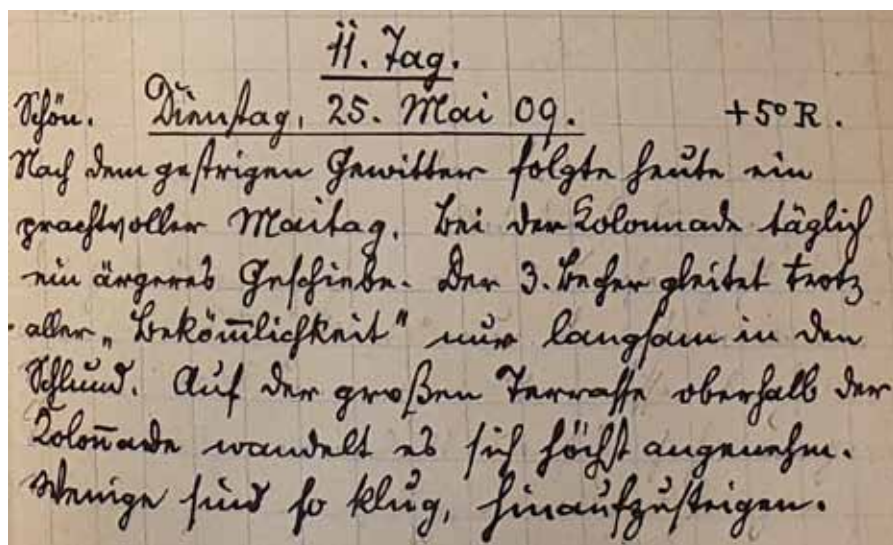 11. Tag.
Schön. Dienstag, 25. Mai 09. +5° R.
Nach dem gestrigen Gewitter folgte heute ein
prachtvoller Maitag. Bei der Kolonnade täglich
ein ärgeres Geschiebe. Der 3. Becher gleitet trotz
aller „Beköm̅lichkeit" nur langsam in den
Schlund. Auf der großen Terrasse oberhalb der
Kolon̅ade wandelt es sich höchst angenehm.
Wenige sind so klug, hinaufzusteigen.